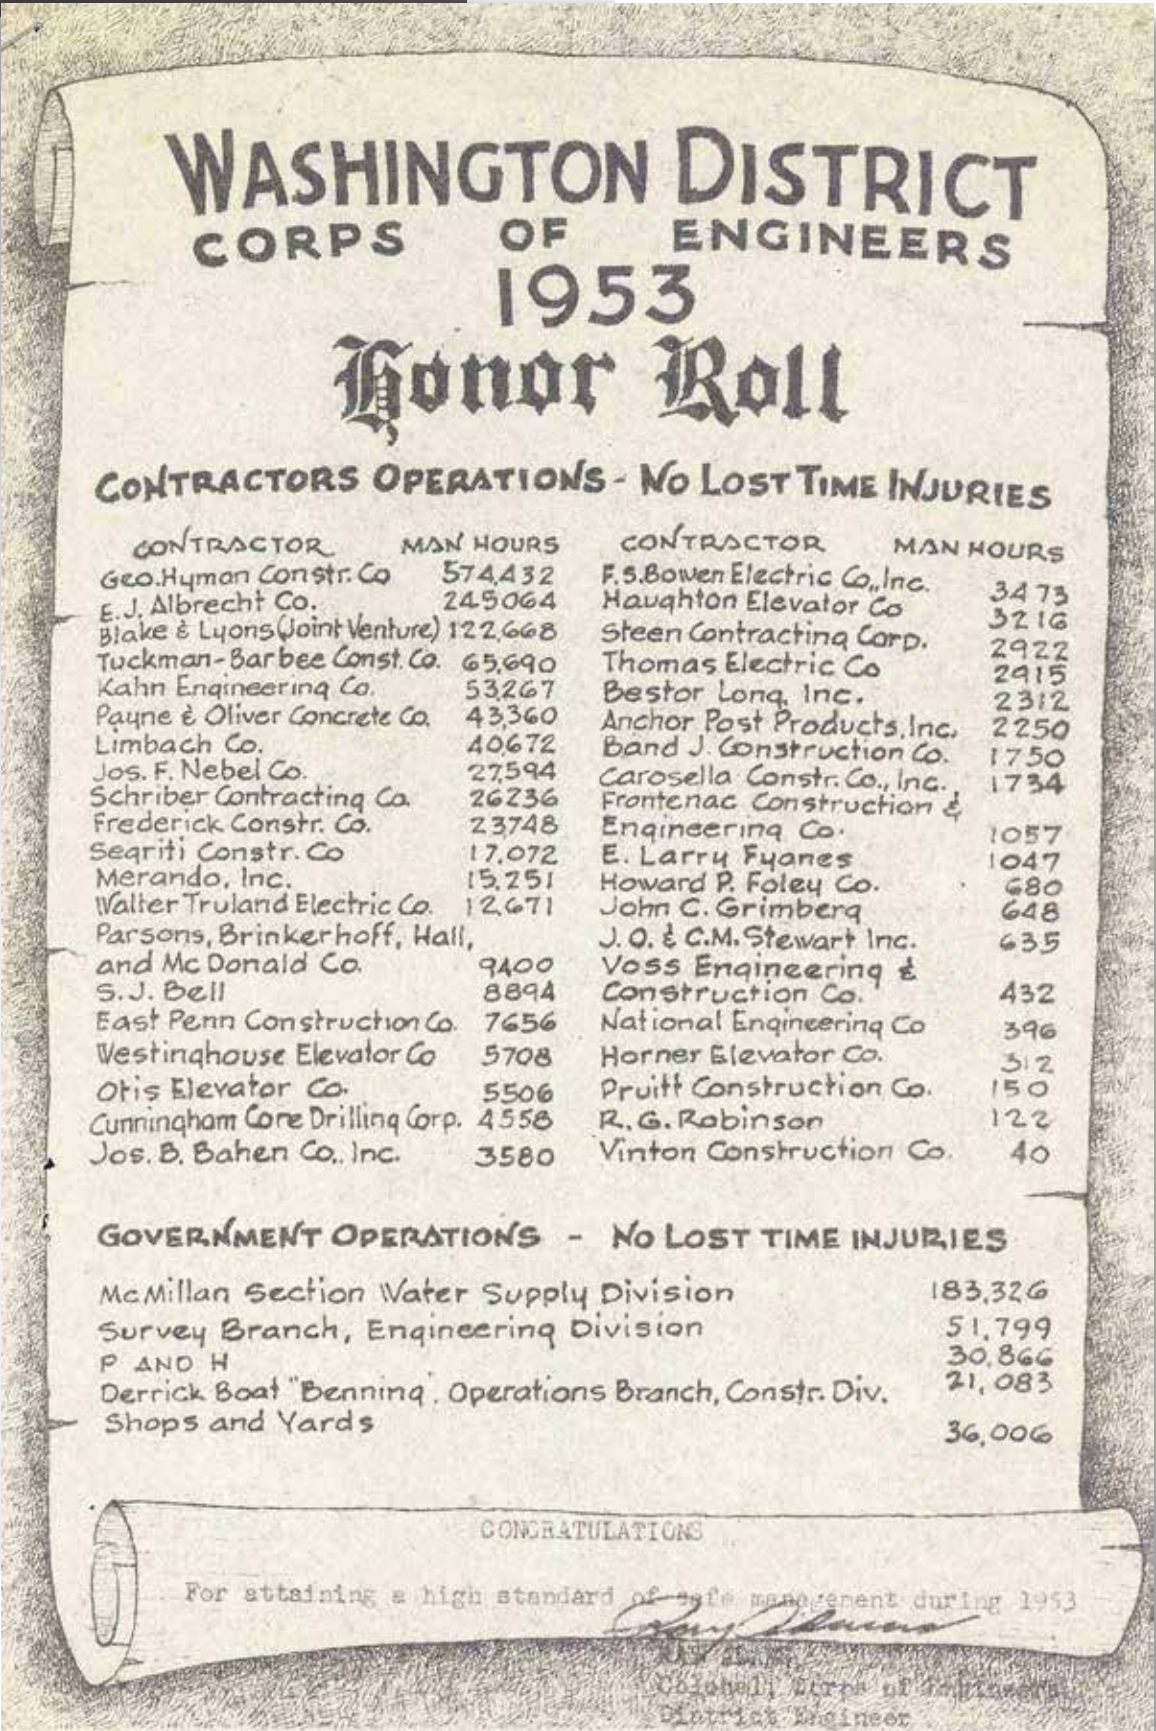 WASHINGTON DISTRICT
CORPS OF ENGINEERS
1953
Honor Roll
CONTRACTORS OPERATIONS - NO LOST TIME INJURIES
CONTRACTOR MAN HOURS
Geo. Hyman Constr. Co 574,432
E.J. Albrecht Co. 245064
Blake & Lyons (Joint Venture) 122,668
Tuckman-Barbee Const. Co. 65,690
Kahn Engineering Co. 53,267
Payne & Oliver Concrete Co. 43,360
Limbach Co. 40,672
Jos. F. Nebel Co. 27,594
Schriber Contracting Co. 26236
Frederick Constr. Co. 23,748
Segriti Constr. Co 17,072
Merando, Inc. 15,251
Walter Truland Electric Co. 12,671
Parsons, Brinkerhoff, Hall,
and McDonald Co. 9400
S.J. Bell 8894
East Penn Construction Co. 7656
Westinghouse Elevator Co 5708
Otis Elevator Co. 5506
Cunningham Core Drilling Corp. 4558
Jos. B. Bahen Co., Inc. 3580
CONTRACTOR MAN HOURS
F.S. Bowen Electric Co., Inc. 3473
Haughton Elevator Co 3216
Steen Contracting Corp. 2922
Thomas Electric Co 2915
Bestor Long, Inc. 2312
Anchor Post Products, Inc. 2250
Band J. Construction Co. 1750
Carosella Constr. Co., Inc. 1734
Frontenac Construction &
Engineering Co. 1057
E. Larry Fyanes 1047
Howard P. Foley Co. 680
John C. Grimberg 648
J.O. & C.M. Stewart Inc. 635
Voss Engineering &
Construction Co. 432
National Engineering Co 396
Horner Elevator Co. 312
Pruitt Construction Co. 150
R.G. Robinson 122
Vinton Construction Co. 40
GOVERNMENT OPERATIONS - NO LOST TIME INJURIES
McMillan Section Water Supply Division 183,326
Survey Branch, Engineering Division 51,799
P AND H 30,866
Derrick Boat "Benning", Operations Branch, Constr. Div. 21,083
Shops and Yards 36,006
CONGRATULATIONS
For attaining a high standard of safe management during 1953
Colonel, Corps of Engineers
District Engineer